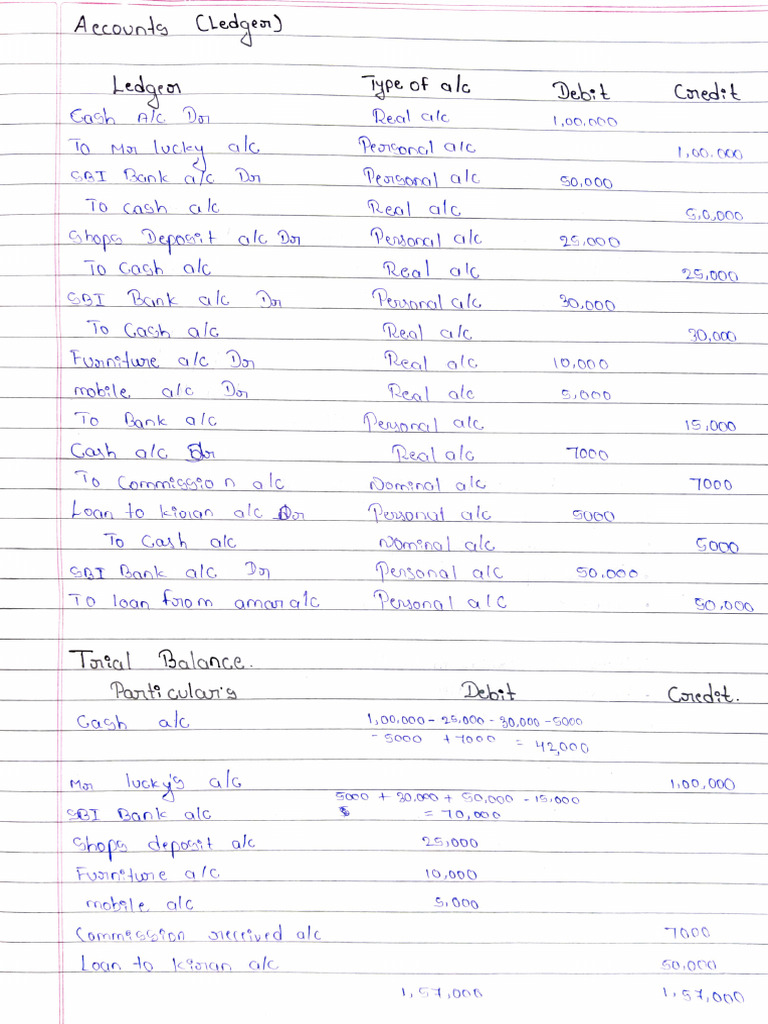 Accounts (Ledger)
Ledger Type of a/c Debit Credit
Cash A/c Dr Real a/c 1,00,000
To Mr lucky a/c Personal a/c 1,00.000
SBI Bank a/c Dr Personal a/c 50,000
To cash a/c Real a/c 5,0,000
Shops Deposit a/c Dr Personal a/c 25,000
To Cash a/c Real a/c 25,000
SBI Bank a/c Dr Personal a/c 30,000
To Cash a/c Real a/c 30,000
Furniture a/c Dr Real a/c 10,000
mobile a/c Dr Real a/c 5,000
To Bank a/c Personal a/c 15,000
Cash a/c Dr Real a/c 7000
To Commission a/c Nominal a/c 7000
Loan to kiran a/c Dr Personal a/c 5000
To Cash a/c Nominal a/c 5000
SBI Bank a/c Dr Personal a/c 50.000
To loan from amar a/c Personal a/c 50,000
Trial Balance.
Particular's Debit Credit.
Cash a/c 1,00,000 - 25,000 - 30,000 - 5000
- 5000 + 7000 = 42,000
Mr lucky's a/c 1,00,000
5000 + 30,000 + 50,000 - 15,000
SBI Bank a/c = 70,000
Shops deposit a/c 25,000
Furniture a/c 10,000
mobile a/c 5,000
Commission received a/c 7000
Loan to kiran a/c 50,000
1,57,000 1,57,000